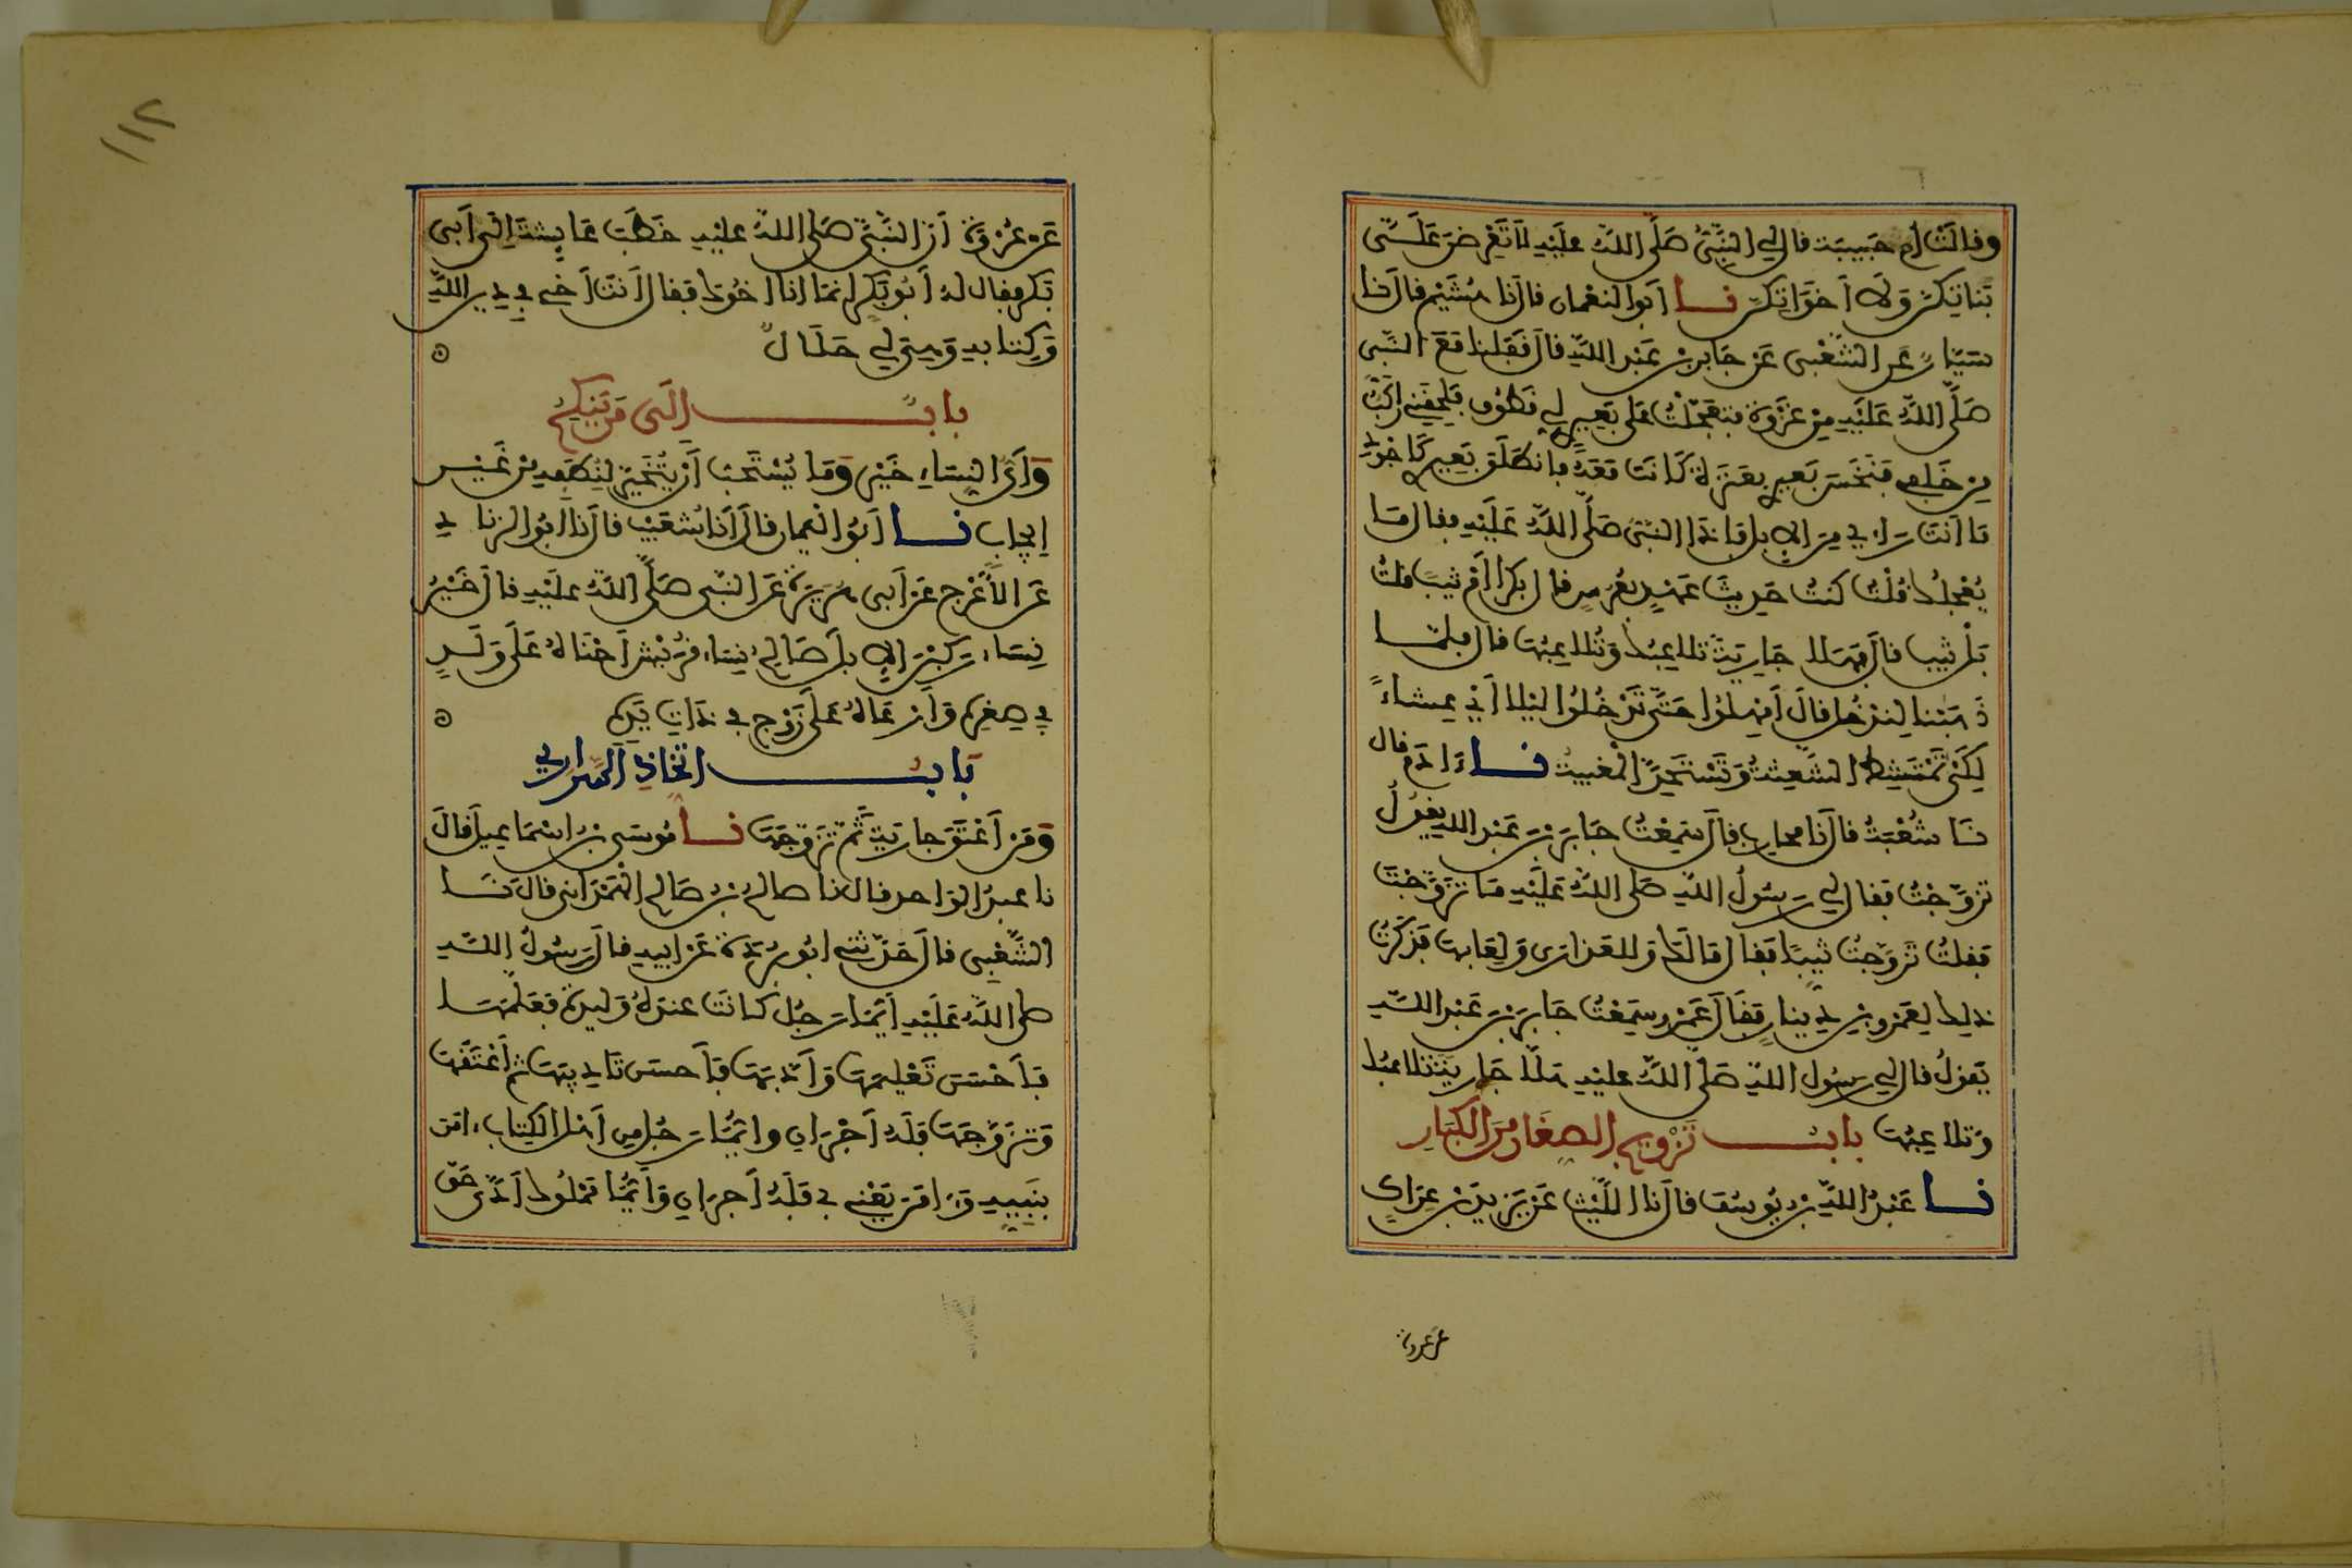 وقالت أم حبيبة قال لي النبيّ صلّى اللّه عليه لا تعرضن عليّ
بناتكن ولا أخواتكن نا أبو النعمان قال نا هشيم قال نا
سيّار عن الشّعبي عن جابر بن عبد اللّه قال قفلنا مع النبي
صلّى اللّه عليه من غزوة فتعجّلت على بعير لي قطوف فلحقني راكب
من خلفي فنخس بعيري بعنزة كانت معه فانطلق بعيري كأجود
ما أنت راء من الإبل فإذا النبيّ صلّى اللّه عليه فقال ما
يعجلك قلت كنت حديث عهد بعرس قال بكرا أم ثيبا قلت
بل ثيب قال فهلا جارية تلاعبها وتلاعبك قال فلما
ذهبنا لندخل قال أمهلوا حتّى تدخلوا ليلا أي عشاء
لكي تمتشط الشعثة وتستحدّ المغيبة نا ءادم قال
نا شعبة قال نا محارب قال سمعت جابر بن عبد الله يقول
تزوّجت فقال لي رسول اللّه صلى اللّه عليه ما تزوّجت
فقلت تزوّجت ثيبا فقال مالك وللعذارى ولعابها فذكرت
ذلك لعمرو بن دينار فقال عمرو سمعت جابر بن عبد اللّه
يقول قال لي رسول اللّه صلى اللّه عليه هلّا جارية تلاعبك
وتلاعبها باب تزويج الصغار من الكبار
نا عبد اللّه بن يوسف قال نا اللّيث عن يزيد بن عراك
عن عروة
١١٢
عن عروة أن النبّي صلى اللّه عليه خطب عايشة إلى أبي
بكر فقال له أبو بكر إنما أنا أخوك فقال أنت أخي في دين اللّه
وكتابه وهي لي حلال
باب إلى من ينكح
وأي النساء خير وما يستحب أن يتخير لنطفه من غير
إيجاب نا أبو اليمان قال أنا شعيب قال نا أبو الزناد
عن الأعرج عن أبي هريرة عن النبي صلّى اللّه عليه قال خير
نساء ركبن الإبل صالح نساء قريش أحناه على ولد
في صغره وأرعاه على زوج في ذات يده
باب اتخاذ السراري
ومن أعتق جارية ثم تزوجها نا موسى بن إسماعيل قال
نا عبد الواحد قال نا صالح بن صالح الهمداني قال نا
الشّعبي قال حدّثني أبو بردة عن أبيه قال رسول اللّه
صلى اللّه عليه أيّما رجل كانت عنده وليدة فعلمها
فأحسن تعليمها وأدّبها فأحسن تأديبها ثم أعتقها
وتزوّجها فله أجران وأيّما رجل من أهل الكتاب ءامن
بنبيه وءامن يعني بي فله أجران وأيّما مملوك أدّى حق